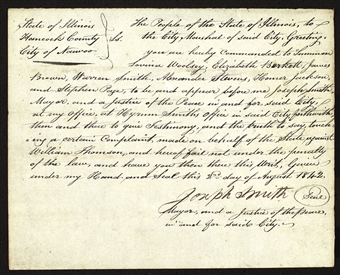 State of Illinois
Hancock County
City of Nauvoo
Sct.
The People of the State of Illinois, to
the City Marshal of said City, Greeting:
you are hereby commanded to Summon
Lovina Woolsey, Elizabeth Barkett, James
Brown, Warren Smith, Alexander Stevens, Homer Jackson,
and Stephen Pope, to be and appear before me Joseph Smith
Mayor, and a Justice of the Peace in and for said City,
at my Office, at Hyrum Smiths office in said City forthwith
then and there to give Testimony, and the truth to say, touch
ing a certain Complaint, made on behalf of the State against
William Thomson, and hereof fail not under the penalty
of the law, and have you then there this Writ. Given
under my Hand and Seal this 2d day of August 1842.
Joseph Smith Seal
Mayor, and a Justice of the peace,
in and for said City.